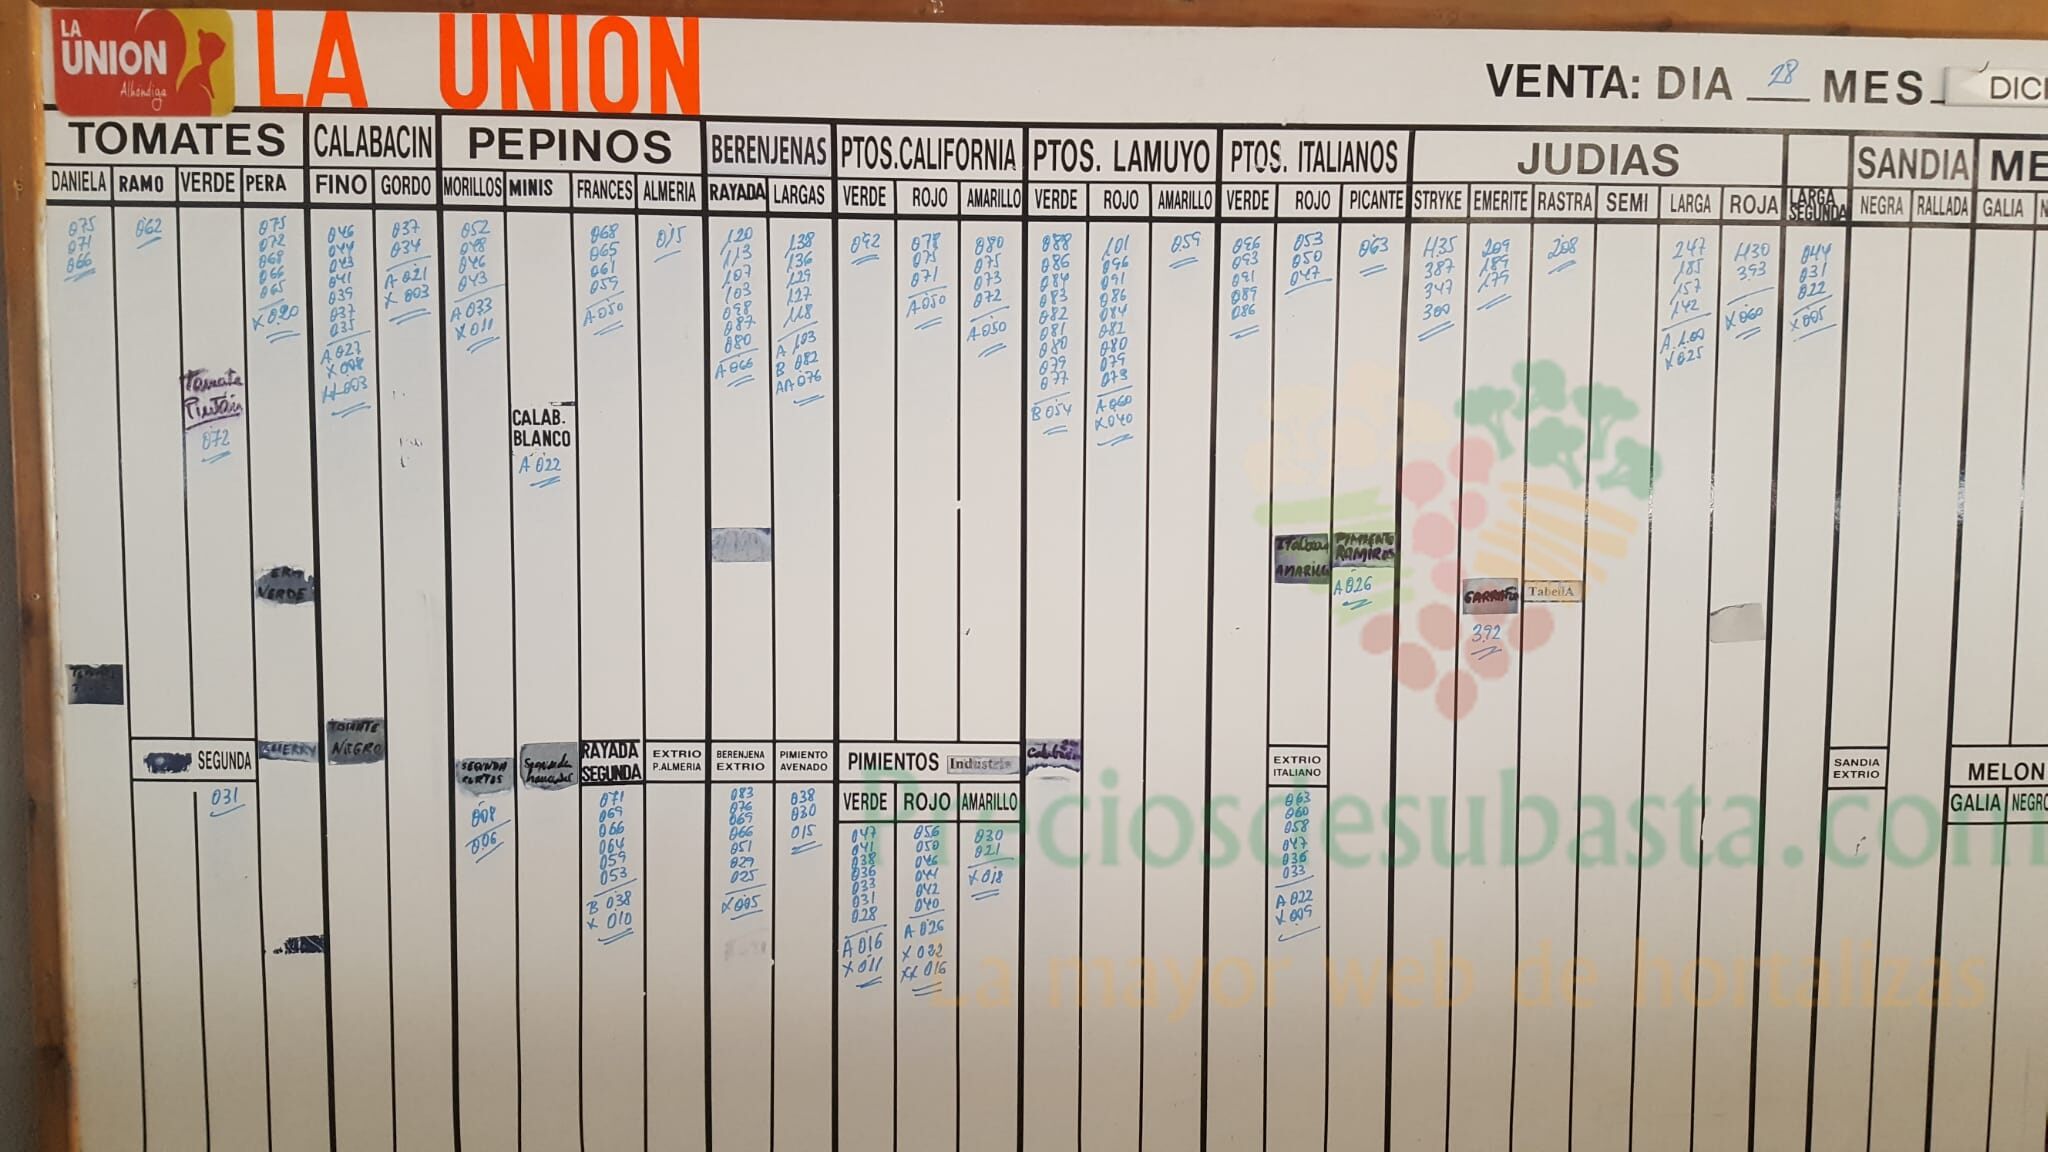 LA
UNION
Alhondiga
LA UNION
VENTA: DIA 28 MES DICI
TOMATES
CALABACIN
PEPINOS
BERENJENAS
PTOS.CALIFORNIA
PTOS. LAMUYO
PTOS. ITALIANOS
JUDIAS
SANDIA
ME
DANIELA
075
071
066
RAMO
062
VERDE
Tomate
Pintón
072
PERA
075
072
068
066
065
X 020
FINO
046
044
043
041
039
037
035
A 027
X 008
GORDO
037
034
A 021
X 003
MORILLOS
052
048
046
043
A 033
X 011
MINIS
CALAB.
BLANCO
A 022
FRANCES
068
065
061
059
A 050
ALMERIA
015
RAYADA
120
113
107
103
098
087
080
A 066
LARGAS
138
136
129
127
118
A 103
B 082
AA 076
VERDE
092
ROJO
078
075
071
A 050
AMARILLO
080
075
073
072
A 050
VERDE
088
086
084
083
082
081
080
079
077
B 054
ROJO
101
096
091
086
084
082
080
079
073
A 060
X 040
AMARILLO
059
VERDE
096
093
091
089
086
ROJO
053
050
047
AMARILLO
PICANTE
063
PIMIENTO
RAMIRO
A 026
STRYKE
435
387
347
300
EMERITE
209
189
179
392
RASTRA
208
TabellA
SEMI
LARGA
247
185
157
142
A 100
X 025
ROJA
430
393
X 060
LARGA
SEGUNDA
044
031
022
X 005
NEGRA
RALLADA
GALIA
N
VERDE
SEGUNDA
031
CHERRY
TOMATE
NEGRO
SEGUNDA
CORTOS
008
006
Segunda
RAYADA
SEGUNDA
071
069
066
064
059
053
B 038
X 010
EXTRIO
P.ALMERIA
BERENJENA
EXTRIO
083
076
069
066
051
029
025
X 005
PIMIENTO
AVENADO
038
030
015
PIMIENTOS Industria
VERDE
047
041
038
036
033
031
028
A 016
X 011
ROJO
056
050
046
044
042
040
A 026
X 022
XX 016
AMARILLO
030
021
X 018
EXTRIO
ITALIANO
063
060
058
047
036
033
A 022
X 009
SANDIA
EXTRIO
MELON
GALIA
NEGRO
Preciosdesubasta.com
La mayor web de hortalizas